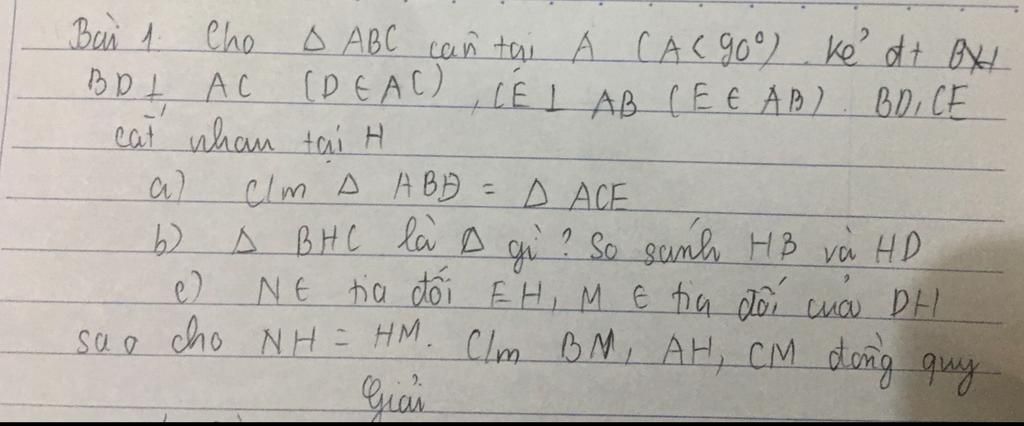 Bài 1. Cho Δ ABC cân tại A (A < 90°). Kẻ đt
BD ⊥ AC (D ∈ AC), CE ⊥ AB (E ∈ AB). BD, CE
cắt nhau tại H
a) C/m Δ ABD = Δ ACE
b) Δ BHC là Δ gì? So sánh HB và HD
c) N ∈ tia đối EH, M ∈ tia đối của DH
sao cho NH = HM. C/m BN, AH, CM đồng quy
Giải